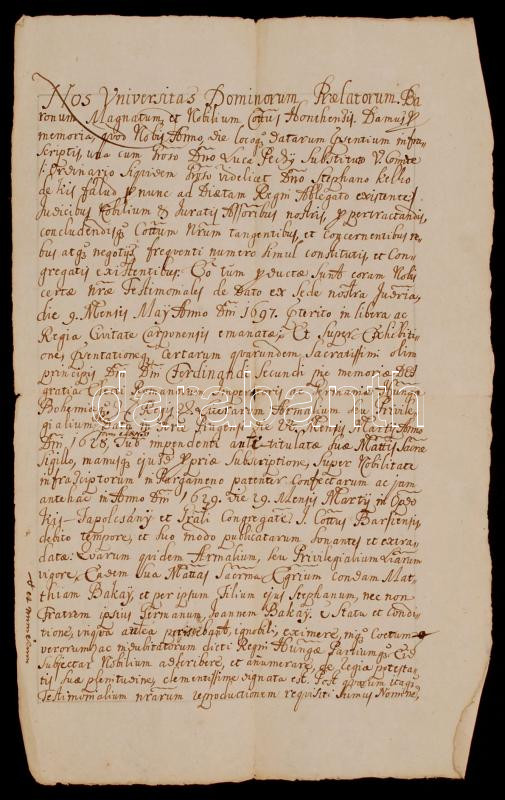 Nos Universitas Dominorum Prælatorum. Ba
ronum Magnatum, et Nobilium Cottus Honthensis. Damus p
memoria, quod Nobis Anno, die locoqȝ datarum psentium infra
scriptis, una cum Dno Luca Substituto V. Comite
Ordinario siquidem videlicet Dno Stephano
de his falud p nunc ad Diætam Regni Ablegato existente
Judicibus Nobilium & Juratis Assoribus nostris, p pertractandis,
concludendisqȝ Cottum Nrum tangentibus, et concernentibus re
bus atqȝ negotijs frequenti numero simul constitutis, et Con
gregatis existentibus. Eo tum pductæ sunt coram Nobis
certæ nræ Testimoniales de Dato ex Sede nostra Judria,
die 9. Mensis May Anno Dni 1697. pterito in libera ac
Regia Civitate Carponensi emanatæ; Et Super Exhibiti-
one, psentationeqȝ certarum quarundem Sacratissimi olim
principis Dni Dni Ferdinandi Secundi piæ memoriæ Dei
gratia Electi Romanorum Imperatoris Germaniæ Hungariæ
Bohemiæ Regis Literarum Armalium seu Privile
gialium, Data in Arce Pragensi die Mensis Martij Anno
Dni 1628, sub impendenti antetitulatæ suæ Mattis Sacræ
Sigillo, manusqȝ ejusdem ppriæ Subscriptione, Super Nobilitate
infrascriptorum in Pargameno patenter Confectarum ac jam
antehac in Anno Dni 1629. Die 29. Mensis Martij in Oppido
Kis-Tapolcsány et Grali Congregatne I. Cottus Barsiensis,
debito tempore, et suo modo publicatarum sonantes et extra
datæ: Quarum quidem Armalium, seu Privilegialium Lrarum
vigore, Eadem Sua Mattas Sacrma Egrium condam Mat-
thiam Bakay, et per ipsum Filium ejus Stephanum, nec non
Fratrem ipsius Germanum, Joannem Bakay. Statu et Condi
tione, inqua antea ignobili, eximere, inqȝ Coetum
verorum, ac indubitatorum dicti Regni Hungæ Partiumqȝ Eid
Subjectar Nobilium adscribere, et anumerare, de Regiæ potesta-
tis suæ plenitudine, clementissime dignata est. Post quarum itaqȝ
Testimonialium nrarum reproductionem requisiti Sumus Nomine,
darabanth